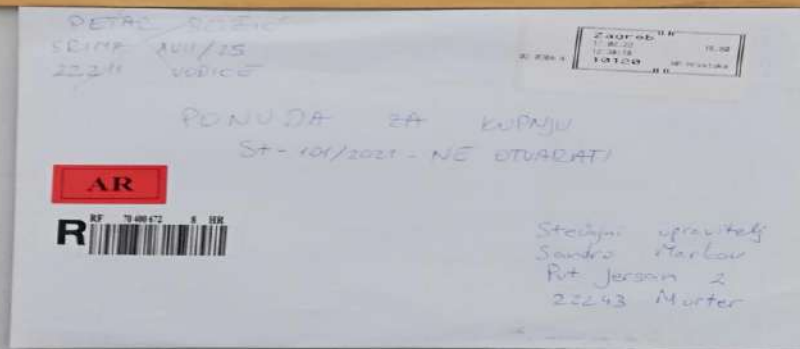 PETAR
SRIMA XVII/25
22211 VODICE
Zagreb
10120
HP-Hrvatska
PONUDA ZA KUPNJU
St-101/2021 - NE OTVARATI
AR
R RF 70 400 672 8 HR
Stečajni upravitelj
Sandro Markov
Put Jersan 2
22243 Murter